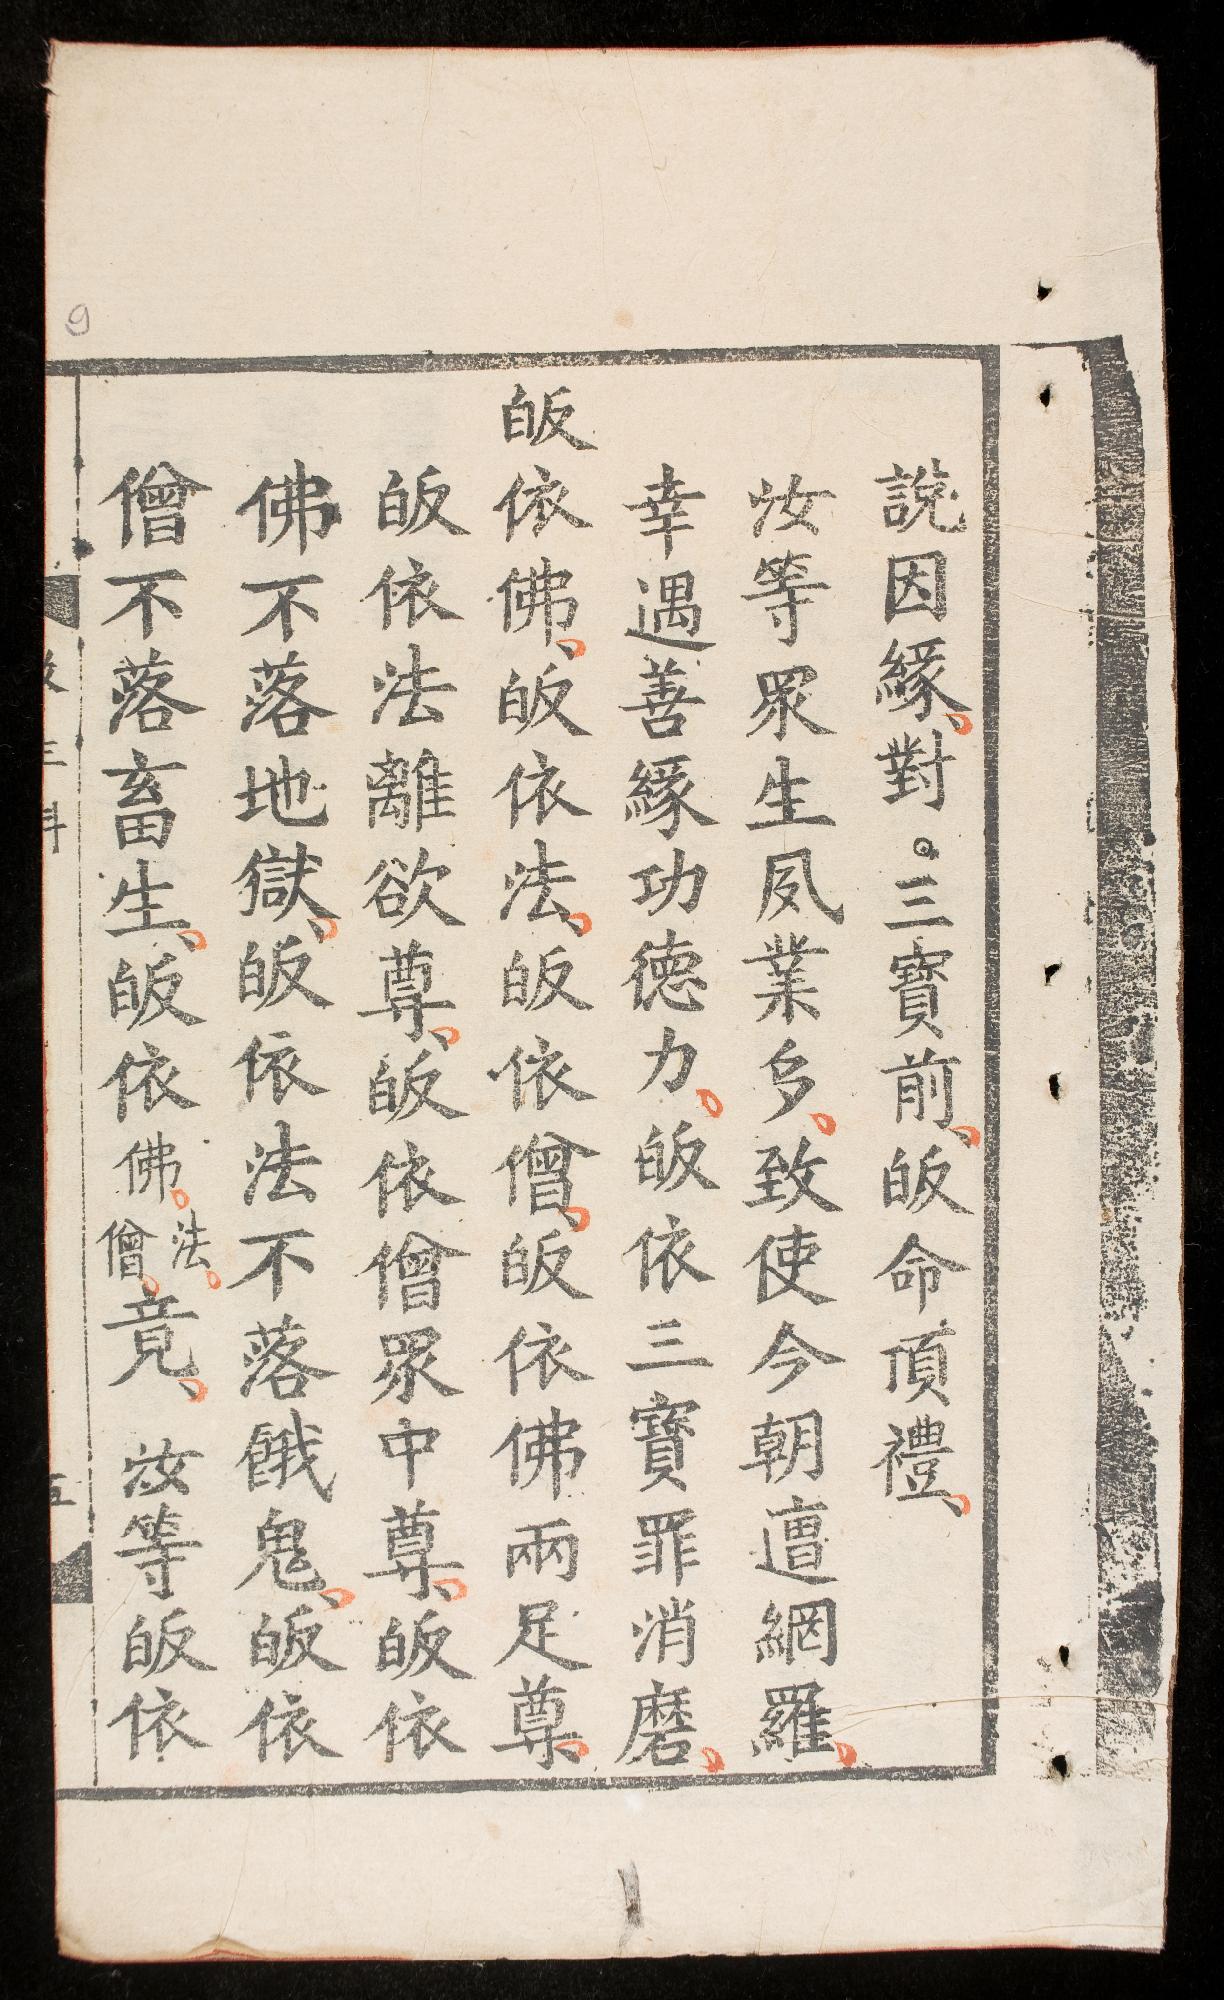 說因緣、對。三寶前、皈命頂禮、
汝等眾生夙業多、致使今朝遭網羅、
幸遇善緣功德力、皈依三寶罪消磨、
皈依佛、皈依法、皈依僧、皈依佛兩足尊、
皈依法離欲尊、皈依僧眾中尊、皈依
佛不落地獄、皈依法不落餓鬼、皈依
僧不落畜生、皈依佛、法、僧、竟、汝等皈依
三科
五
9